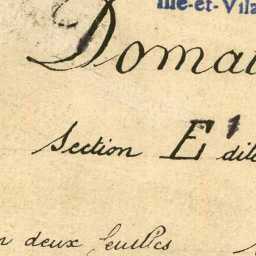 Ille-et-Vila
Domai
Section E¹ dite
n deux feuilles